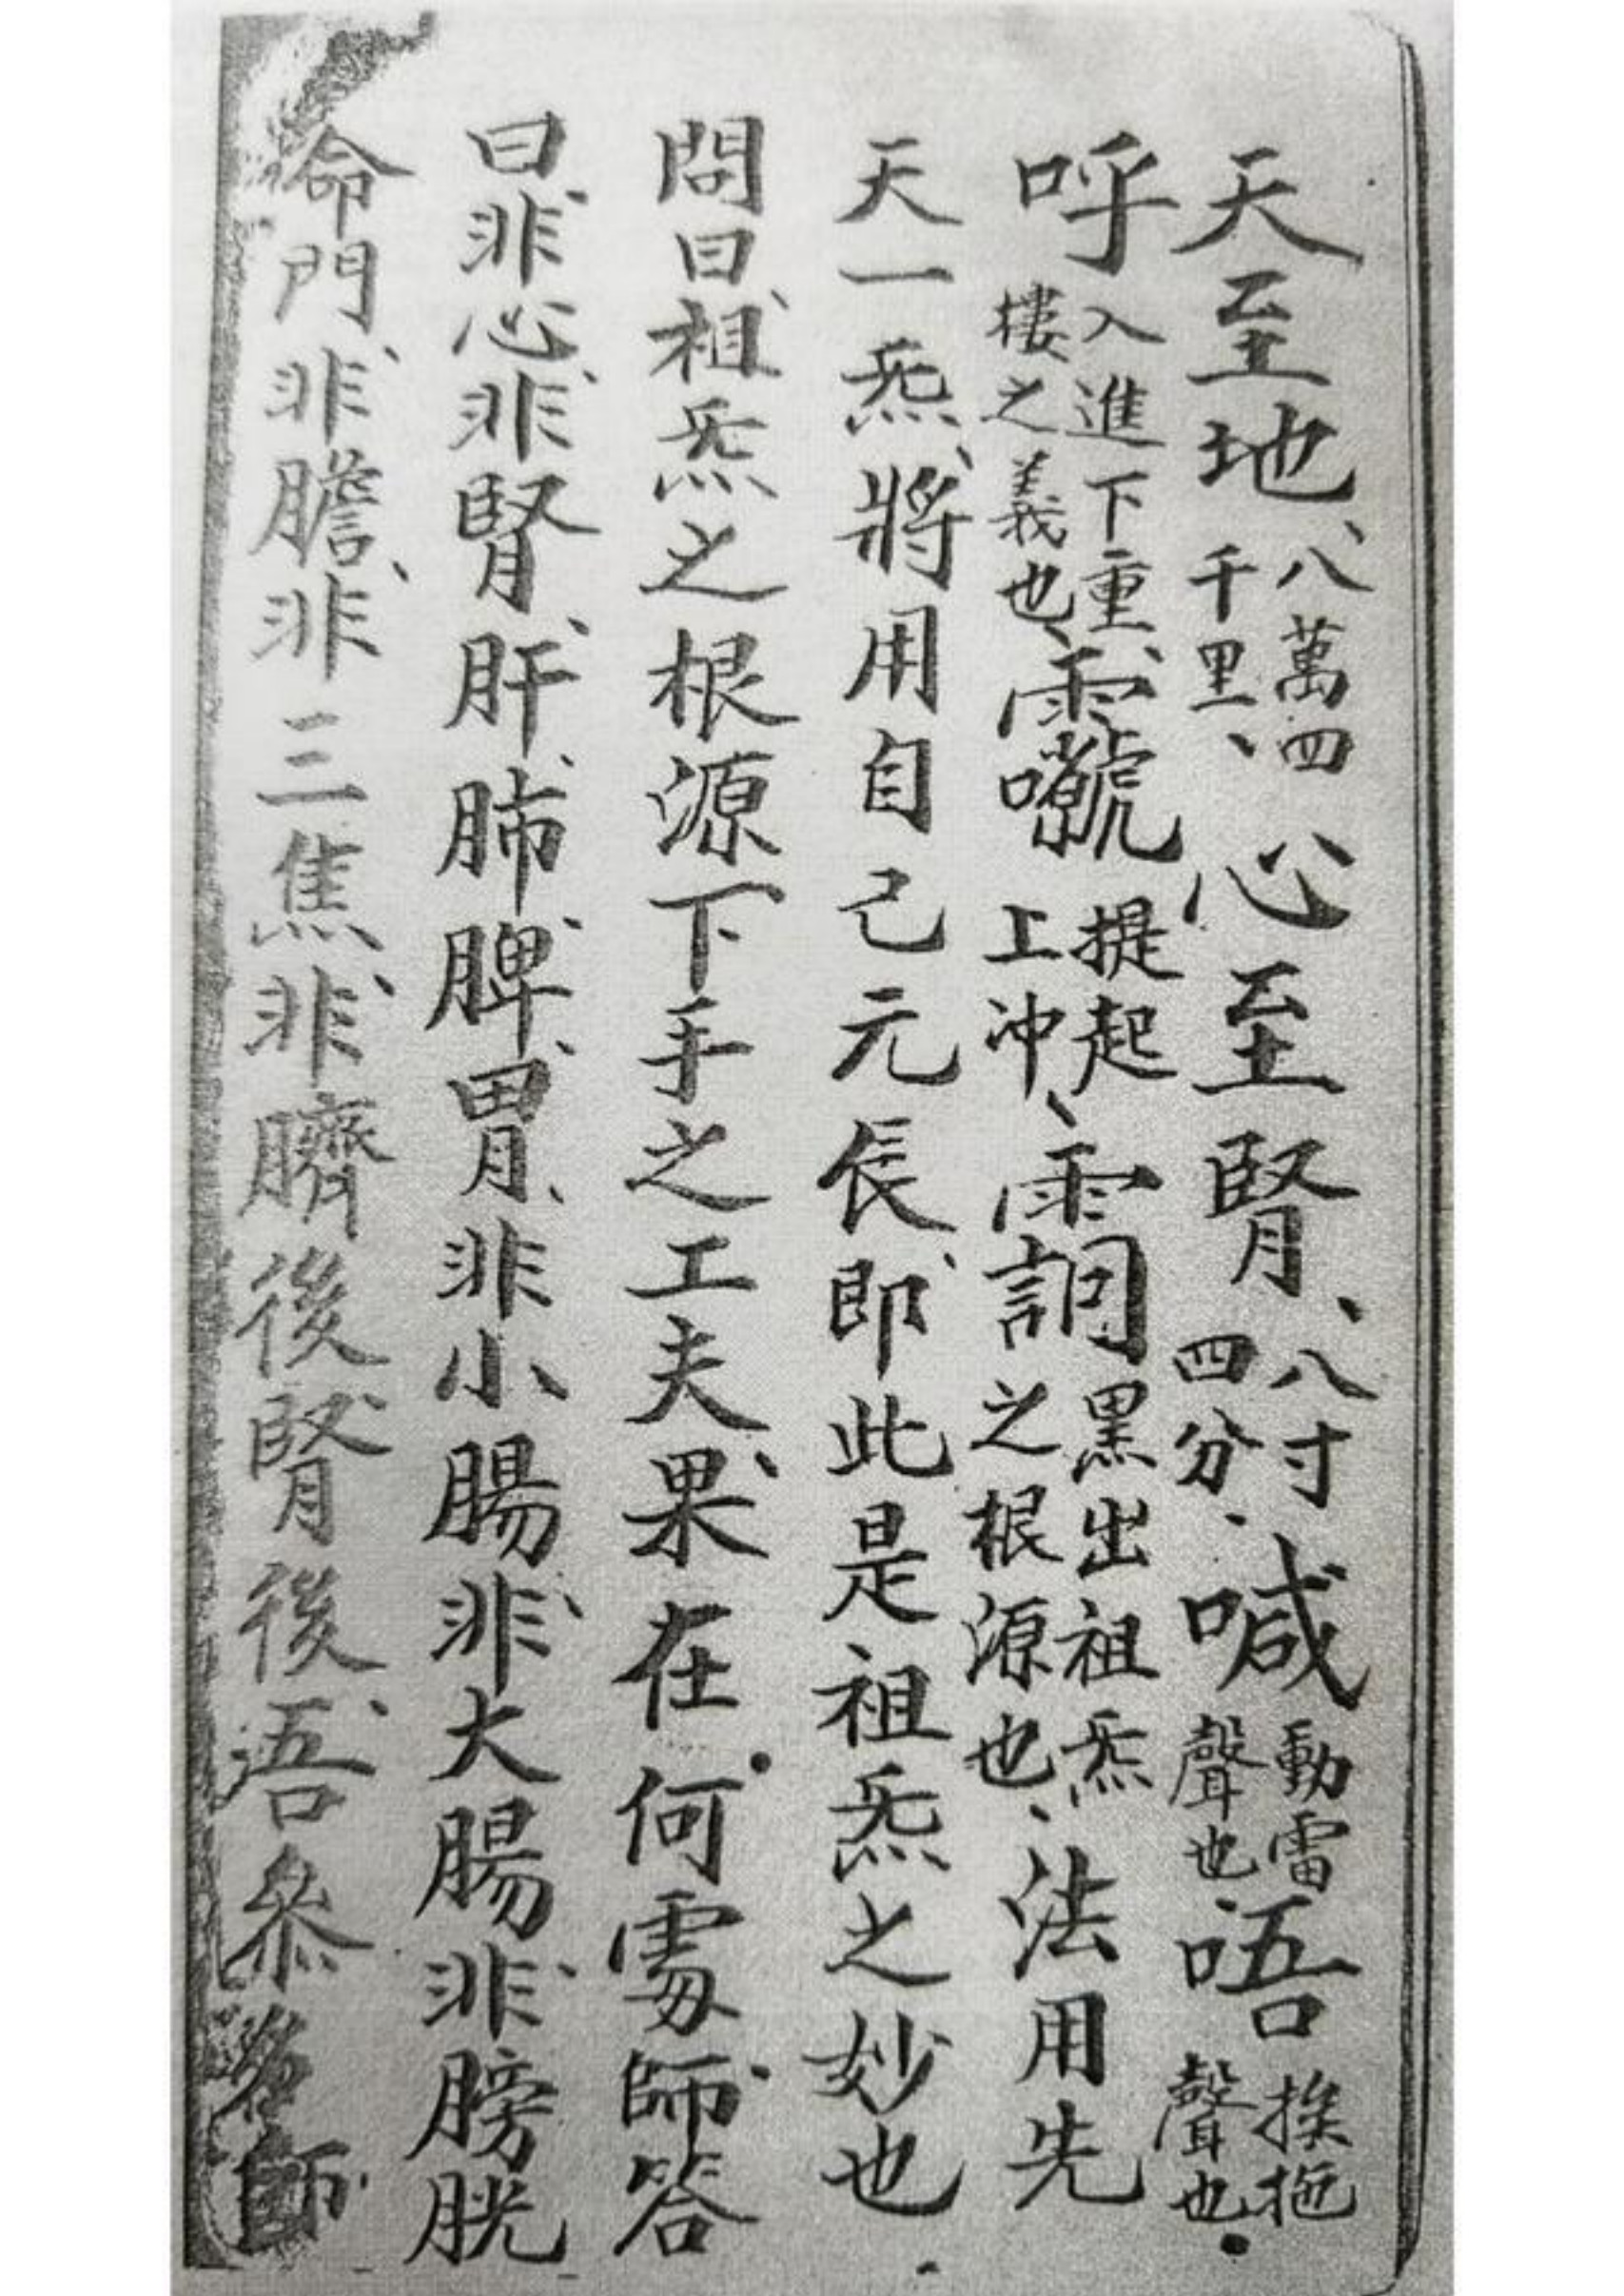 天至地、八萬四千里、心至腎、八寸四分、喊動雷聲也、唔挨拖聲也。
呼入進下重樓之義也、提起上冲、黑出祖炁之根源也、法用先
天一炁、將用自己元辰、即此是祖炁之妙也.
問曰、祖炁之根源下手之工夫、果在何處、師答
曰、非心、非腎、肝、肺、脾、胃、非小腸、非大腸、非膀胱
命門、非膽、非三焦、非臍後腎後、吾叅名師